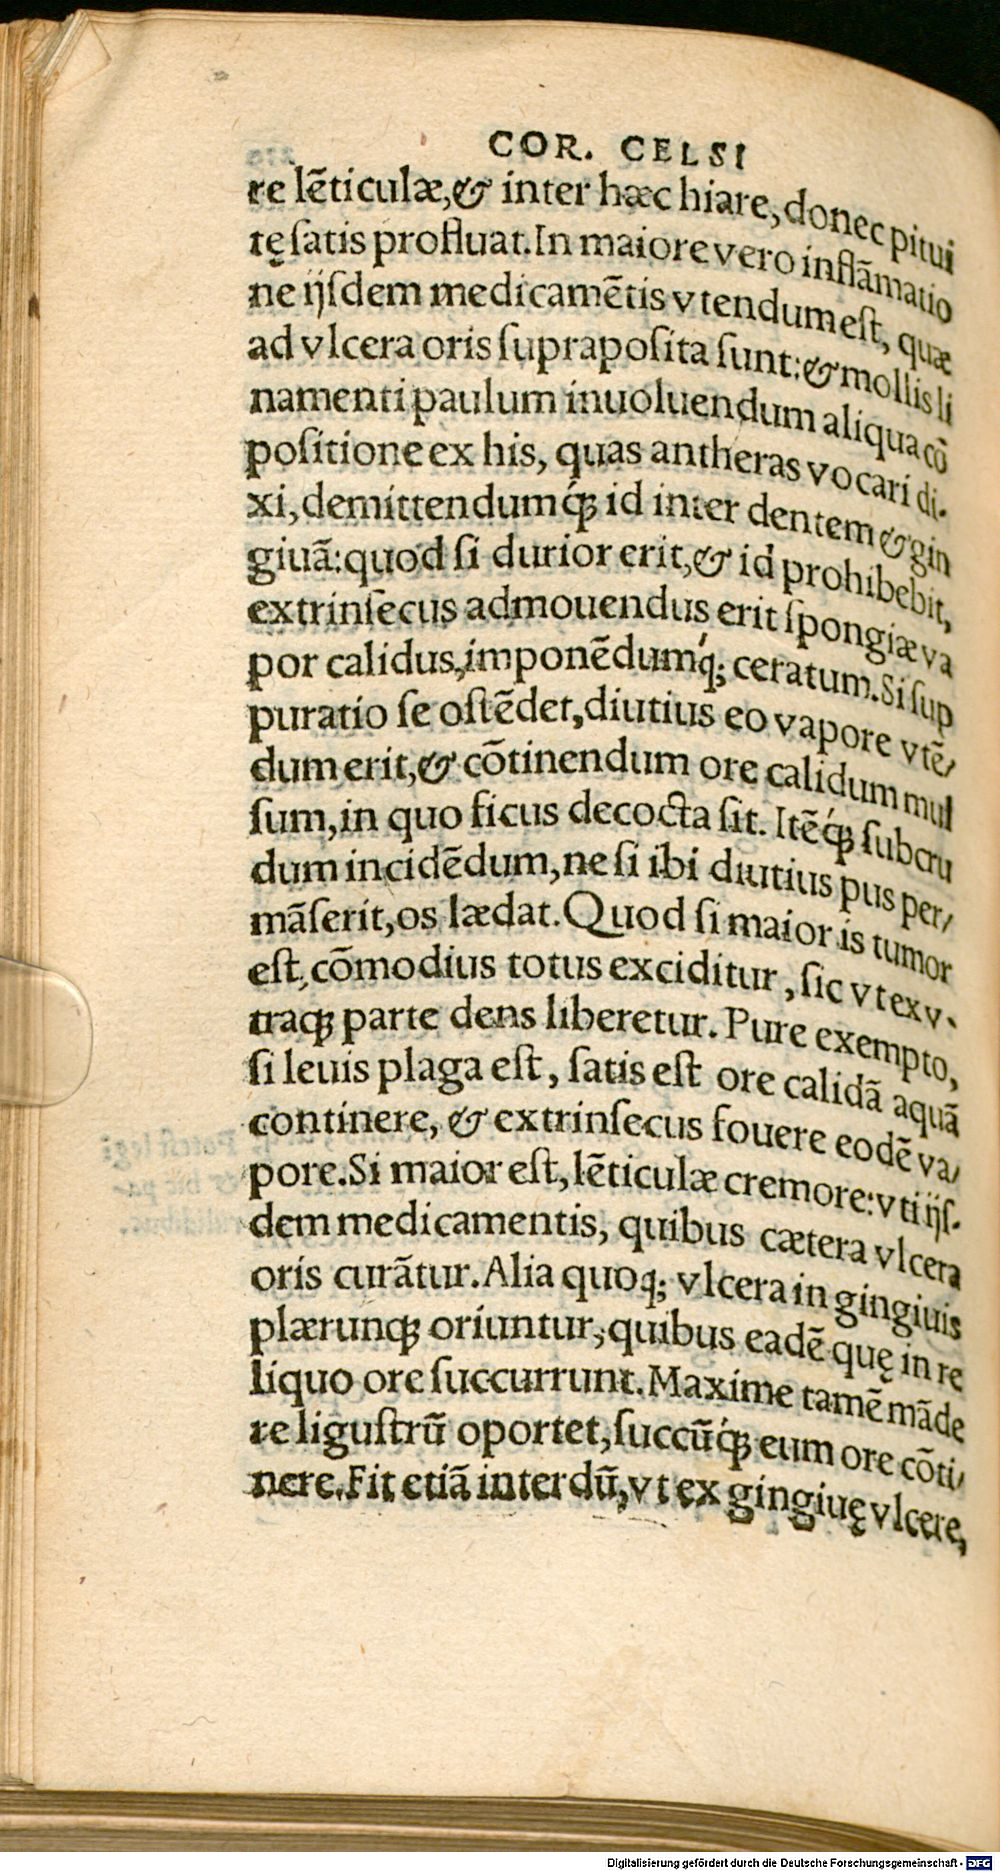 COR. CELSI
re lẽticulæ,& inter hæc hiare, donec pitui
tę ſatis profluat. In maiore vero inflãmatio
ne ijſdem medicamẽtis vtendum eſt, quæ
ad vlcera oris ſupra poſita ſunt: & mollis li
namenti paulum inuoluendum aliqua cõ
poſitione ex his, quas antheras vocari di-
xi, demittendumq́ꝫ id inter dentem & gin
giuã: quod ſi durior erit, & id prohibebit,
extrinſecus admouendus erit ſpongiæ va
por calidus, imponẽdumq́; ceratum. Si ſup
puratio ſe oſtẽdet, diutius eo vapore vtẽ/
dum erit, & cõtinendum ore calidum mul
ſum, in quo ficus decocta ſit. Itẽq́ꝫ ſubcru
dum incidẽdum, ne ſi ibi diutius pus per/
mãſerit, os lædat. Quod ſi maior is tumor
eſt, cõmodius totus exciditur, ſic vt ex v-
traqꝫ parte dens liberetur. Pure exempto,
ſi leuis plaga eſt, ſatis eſt ore calidã aquã
continere, & extrinſecus fouere eodẽ va/
pore. Si maior eſt, lẽticulæ cremore: vti ijſ-
dem medicamentis, quibus cætera vlcera
oris curãtur. Alia quoq; vlcera in gingiuis
plærunqꝫ oriuntur, quibus eadẽ quę in re
liquo ore ſuccurrunt. Maxime tamẽ mãde
re liguſtrũ oportet, ſuccũq́ꝫ eum ore cõti/
nere. Fit etiã interdũ, vt ex gingiuę vlcere,
Digitalisierung gefördert durch die Deutsche Forschungsgemeinschaft - DFG